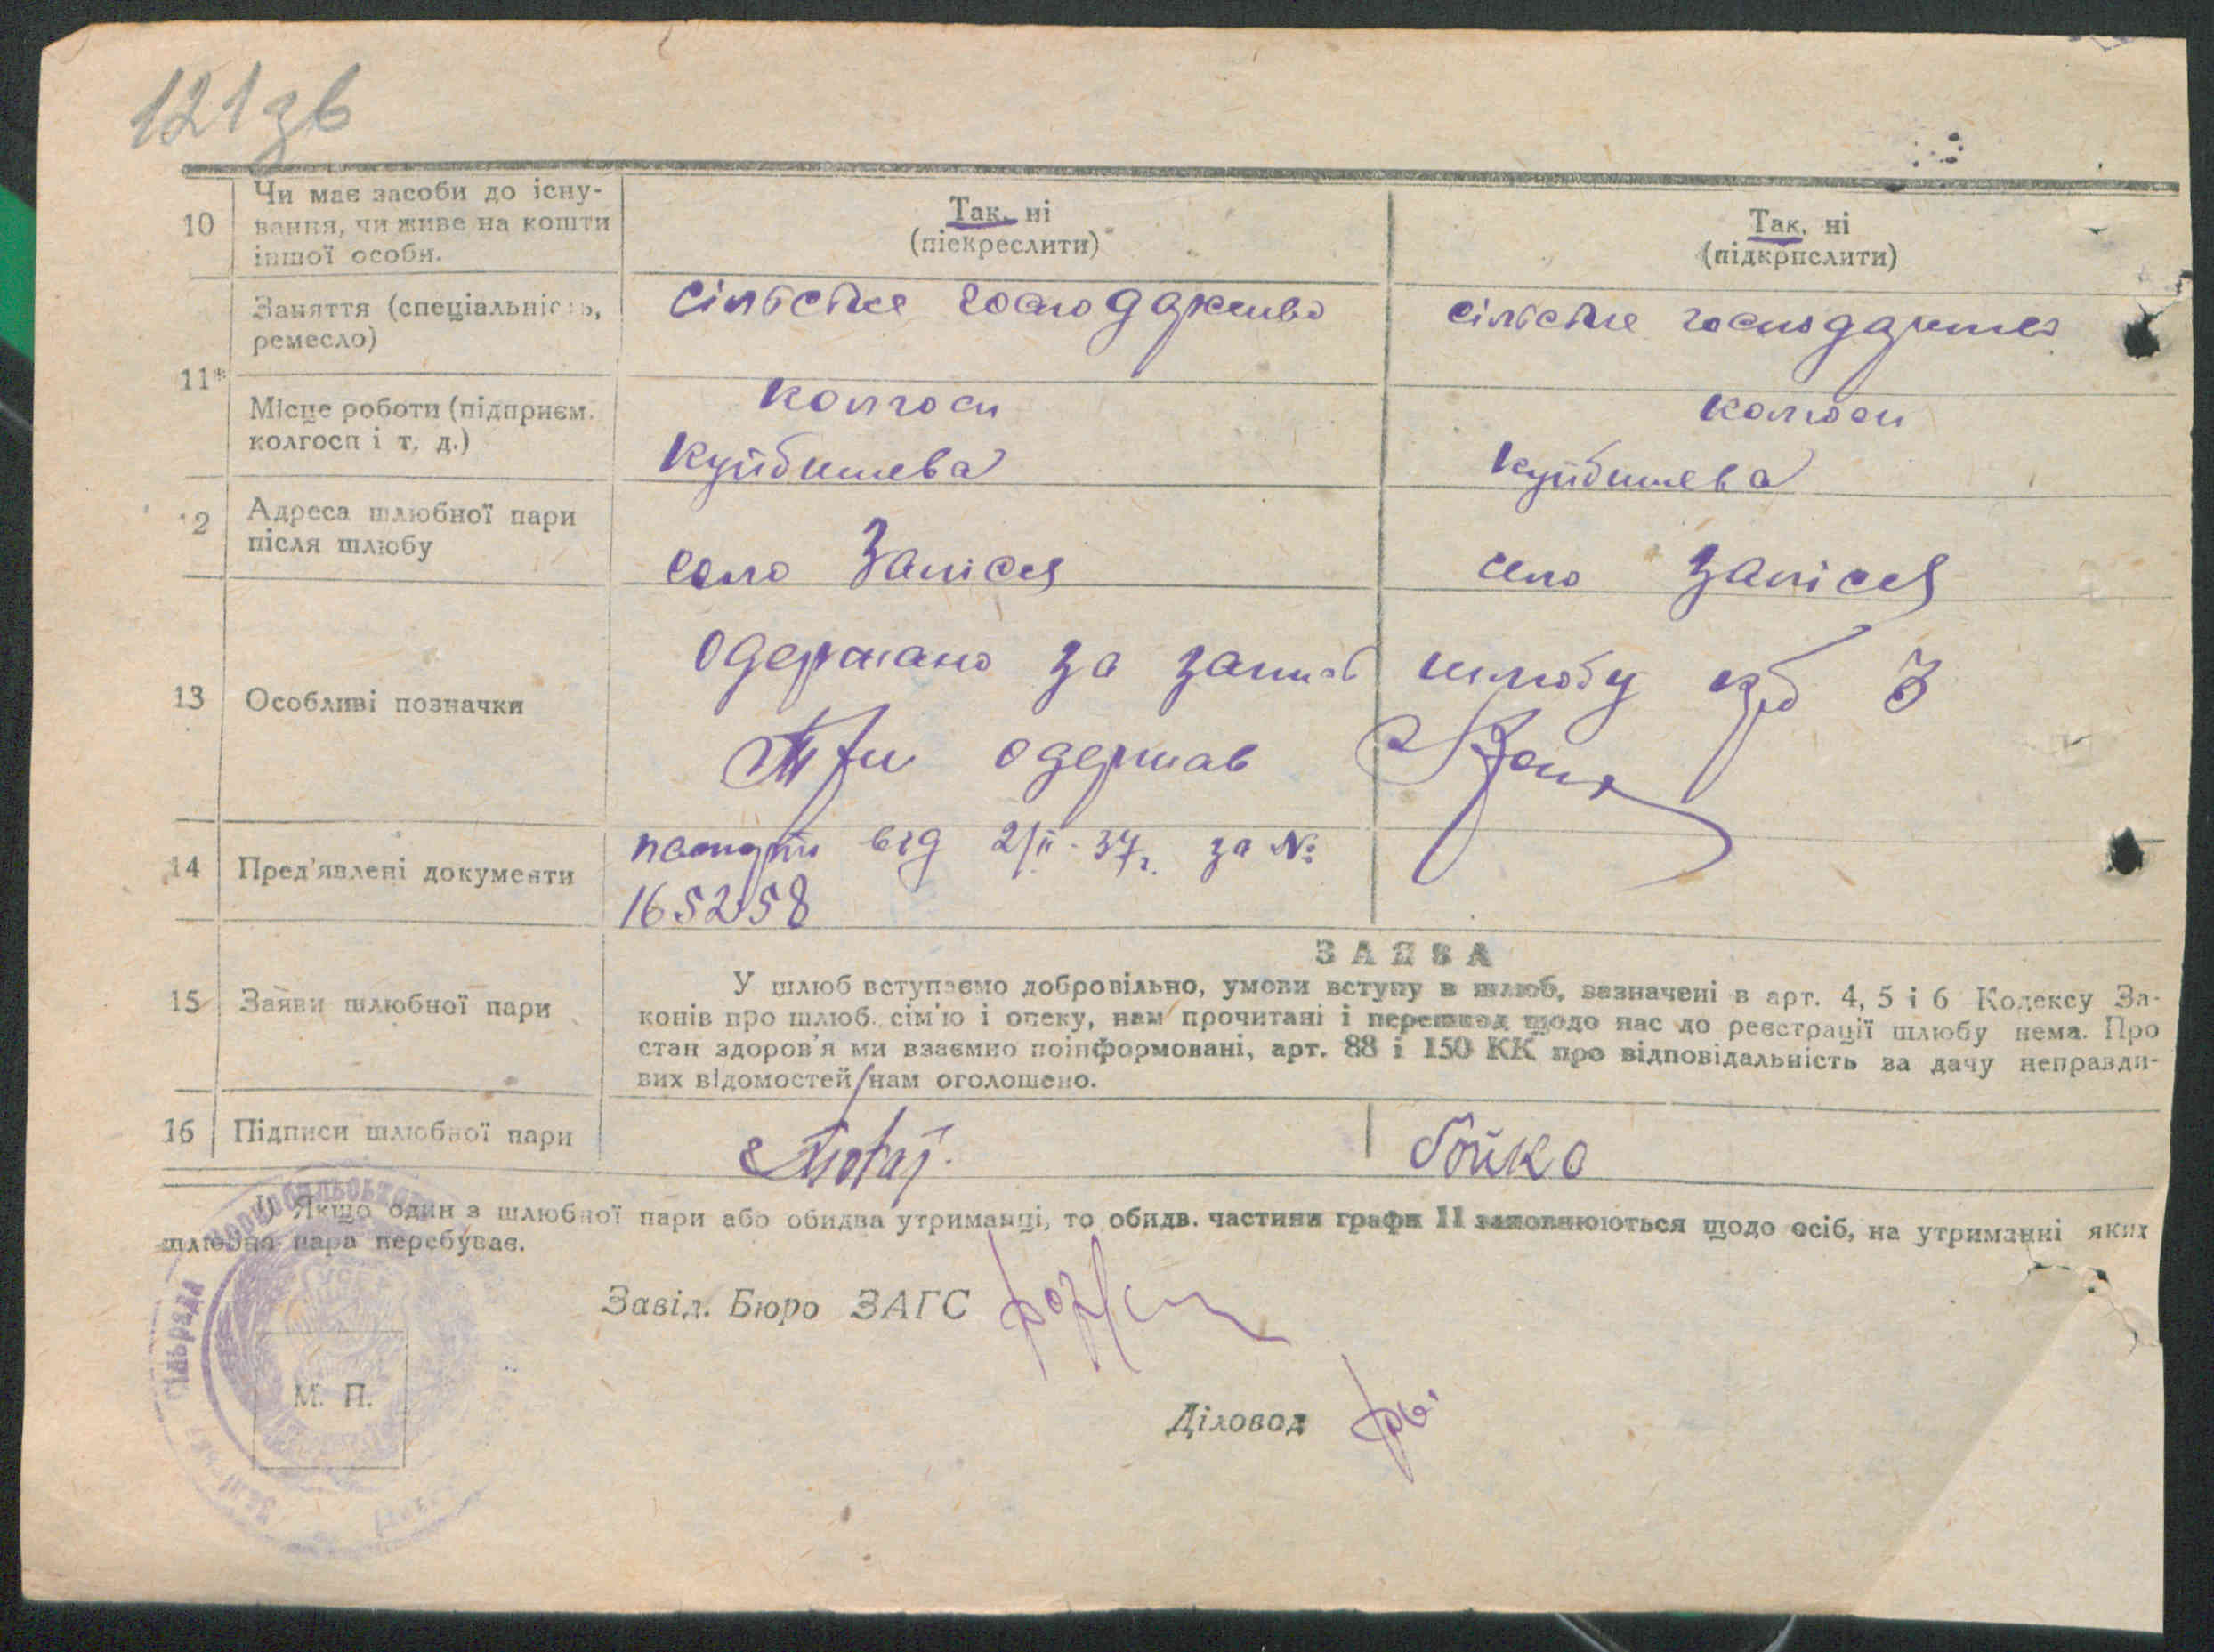 121 зв
Чи має засоби до існу-
10 вання, чи живе на кошти
іншої особи.
Так, ні
(піекреслити)
Так, ні
(підкрпслити)
Заняття (спеціальність,
ремесло)
сільське господарство
сільське господарство
11*
Місце роботи (підприєм.
колгосп і т. д.)
колгосп
Куйбишева
колгосп
Куйбишева
12 Адреса шлюбної пари
після шлюбу
село Залісся
село Залісся
13 Особливі позначки
Одержано за запис шлюбу крб 3
Три одержав
14 Пред'явлені документи
паспорт від 2/ІІ-37г. за №
165258
ЗАЯВА
15 Заяви шлюбної пари
У шлюб вступаємо добровільно, умови вступу в шлюб, зазначені в арт. 4, 5 і 6 Кодексу За-
конів про шлюб, сім'ю і опеку, нам прочитані і перешкод щодо нас до реєстрації шлюбу нема. Про
стан здоров'я ми взаємно поінформовані, арт. 88 і 150 КК про відповідальність за дачу неправди-
вих відомостей нам оголошено.
16 Підписи шлюбної пари
Бойко
1) Якщо один з шлюбної пари або обидва утриманці, то обидв. частини графи 11 заповнюються щодо осіб, на утриманні яких
шлюбна пара перебуває.
Завід. Бюро ЗАГС
М. П.
Діловод
сільрада
УСРР